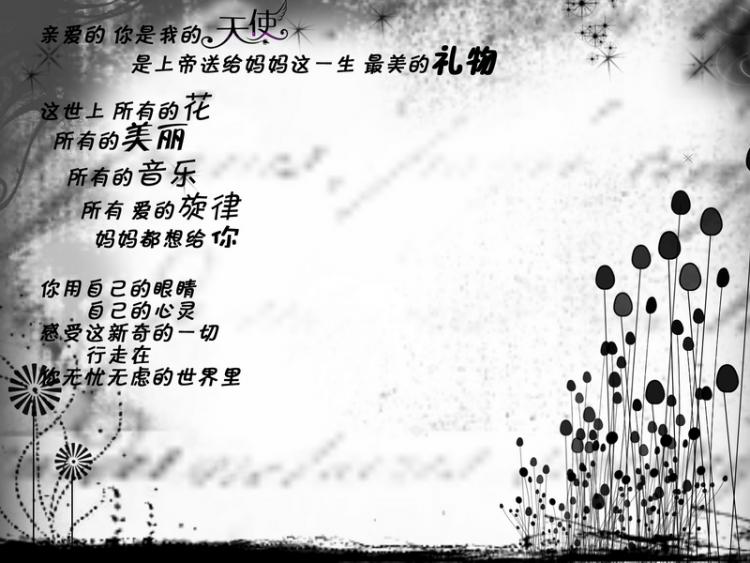 亲爱的 你是我的天使
是上帝送给妈妈这一生 最美的礼物
这世上 所有的花
所有的美丽
所有的音乐
所有 爱的旋律
妈妈都想给 你
你用自己的眼睛
自己的心灵
感受这新奇的一切
行走在
你无忧无虑的世界里